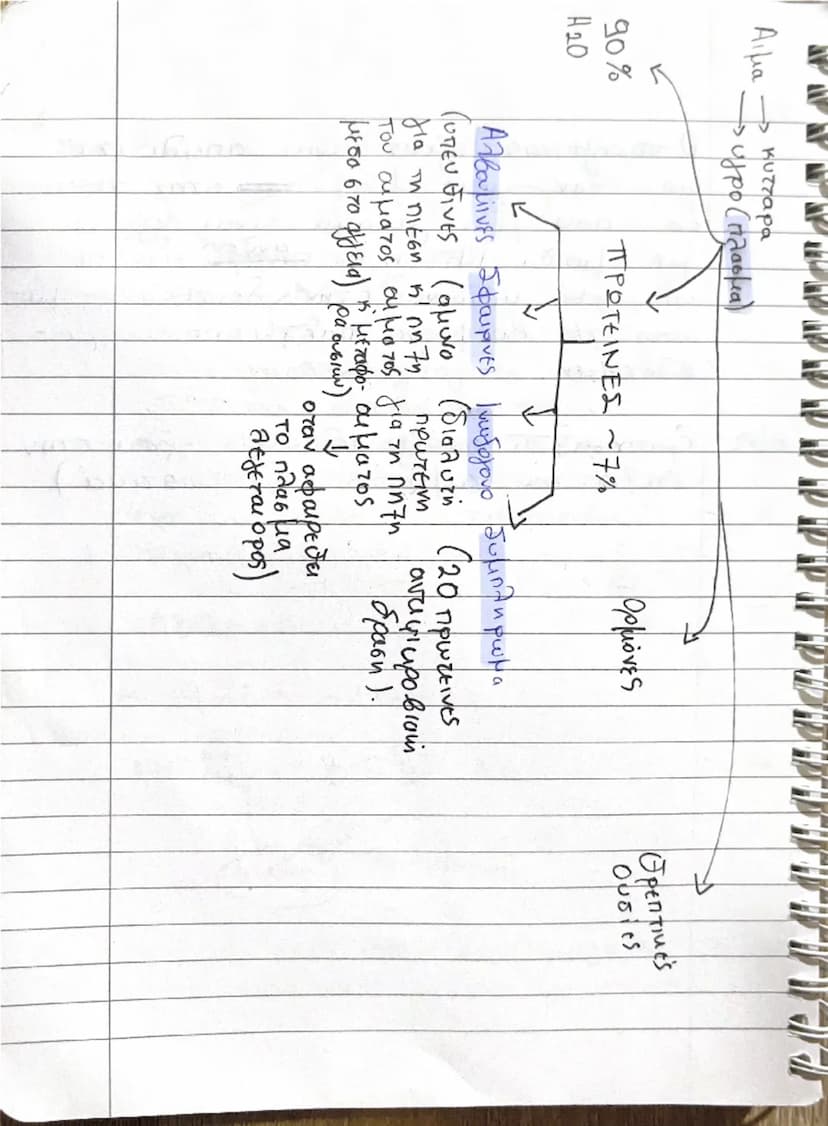 Αιμα → κυτταρα
→ υγρο (πλασμα)
90%
H2O
ΠΡΩΤΕΙΝΕΣ ~7%
Ορμόνες
Θρεπτικές
ουσίες
Αλβουμίνες
(υπευθίνες
για τη πιεση
του αιματος
μεσα στα αγγεια)
Σφαιρίνες
(αμυνα
κ' πηξη
αιματος
κ' μεταφο-
ρα ουσιών)
Ινωδογονο
(διαλυτη
πρωτεινη
για τη πηξη
αιματος
↓
οταν αφαιρεθει
το πλασμα
λεγεται ορος)
Συμπληρωμα
(20 πρωτεινες
αντιμικροβιακη
δραση).